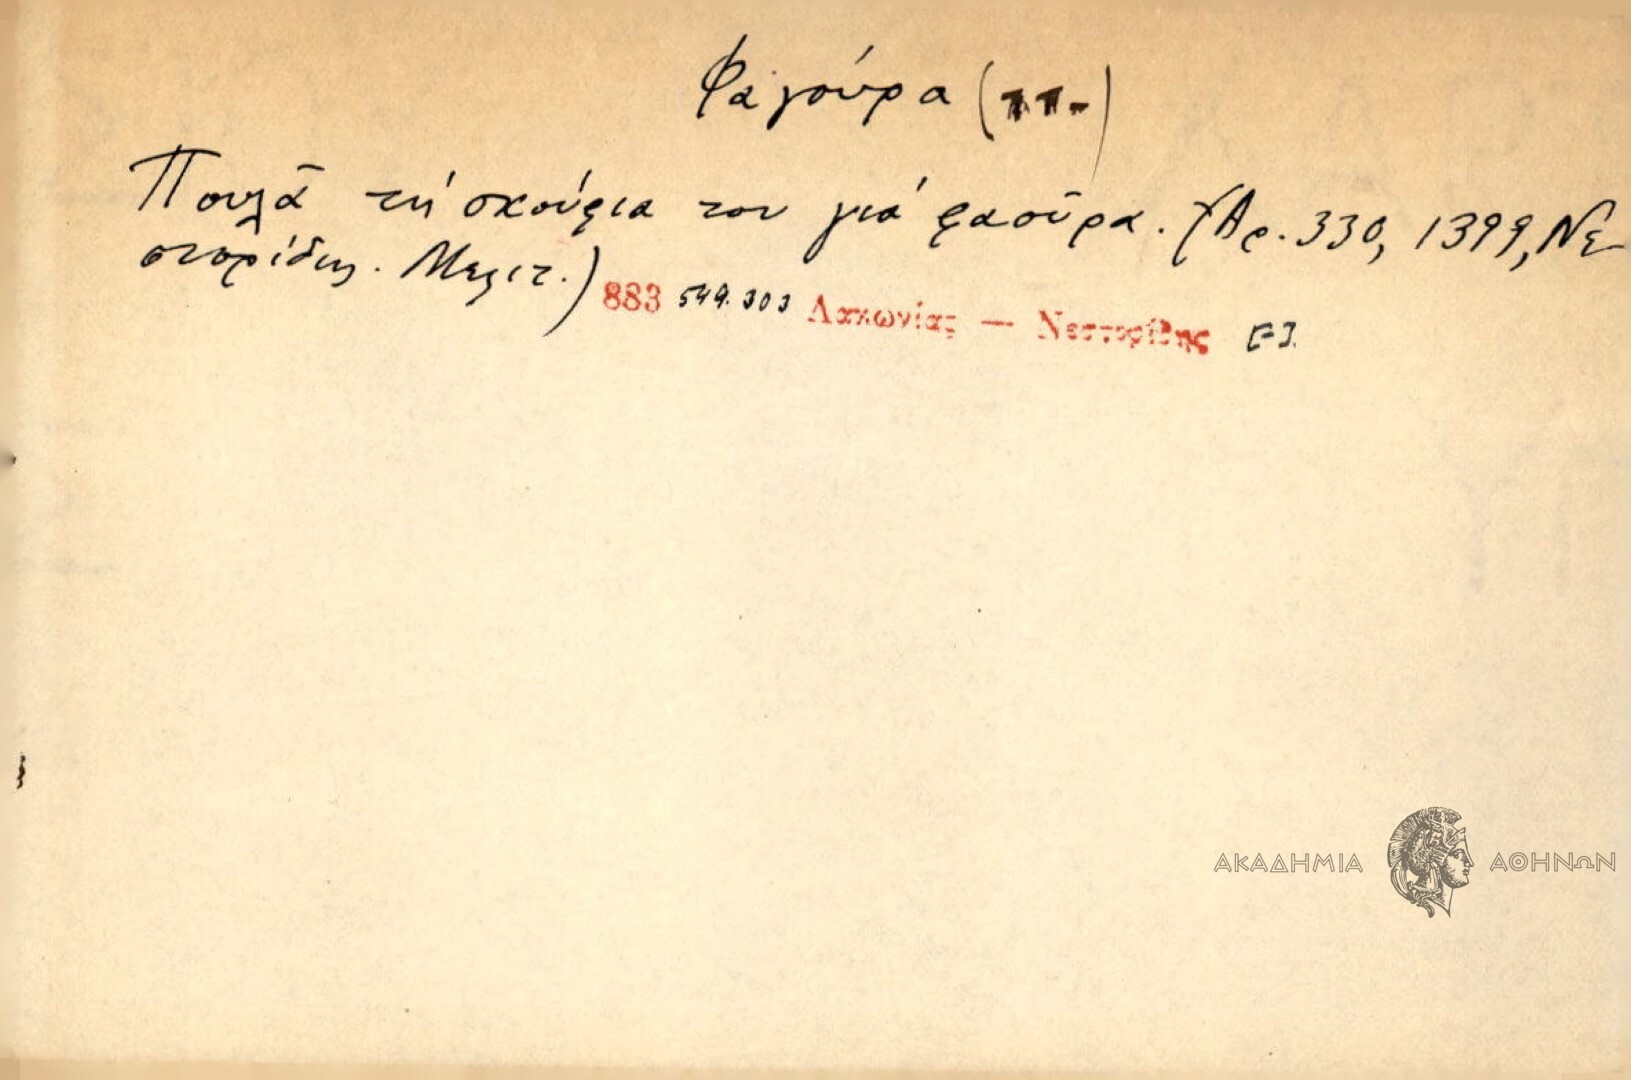 Φαγούρα (π.-)
Πουλᾶ τή σκούφια του γιά φαοῦρα. (Ἀρ. 330, 1399, Νε-
στορίδης. Μελιτ.)
883 549. 303 Λακωνίας — Νεστορίδης [-].
ΑΚΑΔΗΜΙΑ ΑΘΗΝΩΝ